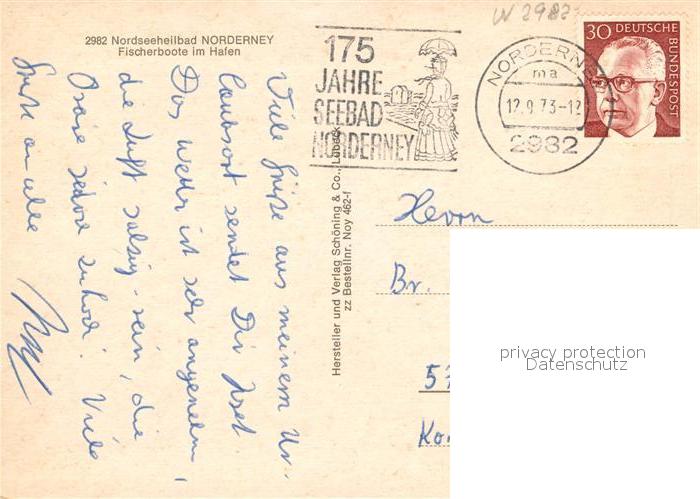 2982 Nordseeheilbad NORDERNEY
Fischerboote im Hafen
Viele Grüße aus meinem Ur-
laubsort sendet Dir
Das Wetter ist sehr angenehm,
die Luft salzig-rein, die
Viele
Grüße an alle
Hersteller und Verlag Schöning & Co., Lübeck
zz Bestellnr. Noy 462-f
175
JAHRE
SEEBAD
NORDERNEY
W 2982
NORDERNEY
ma
12.9.73-12
2982
30 DEUTSCHE
BUNDESPOST
Herrn
Br.
privacy protection
Datenschutz